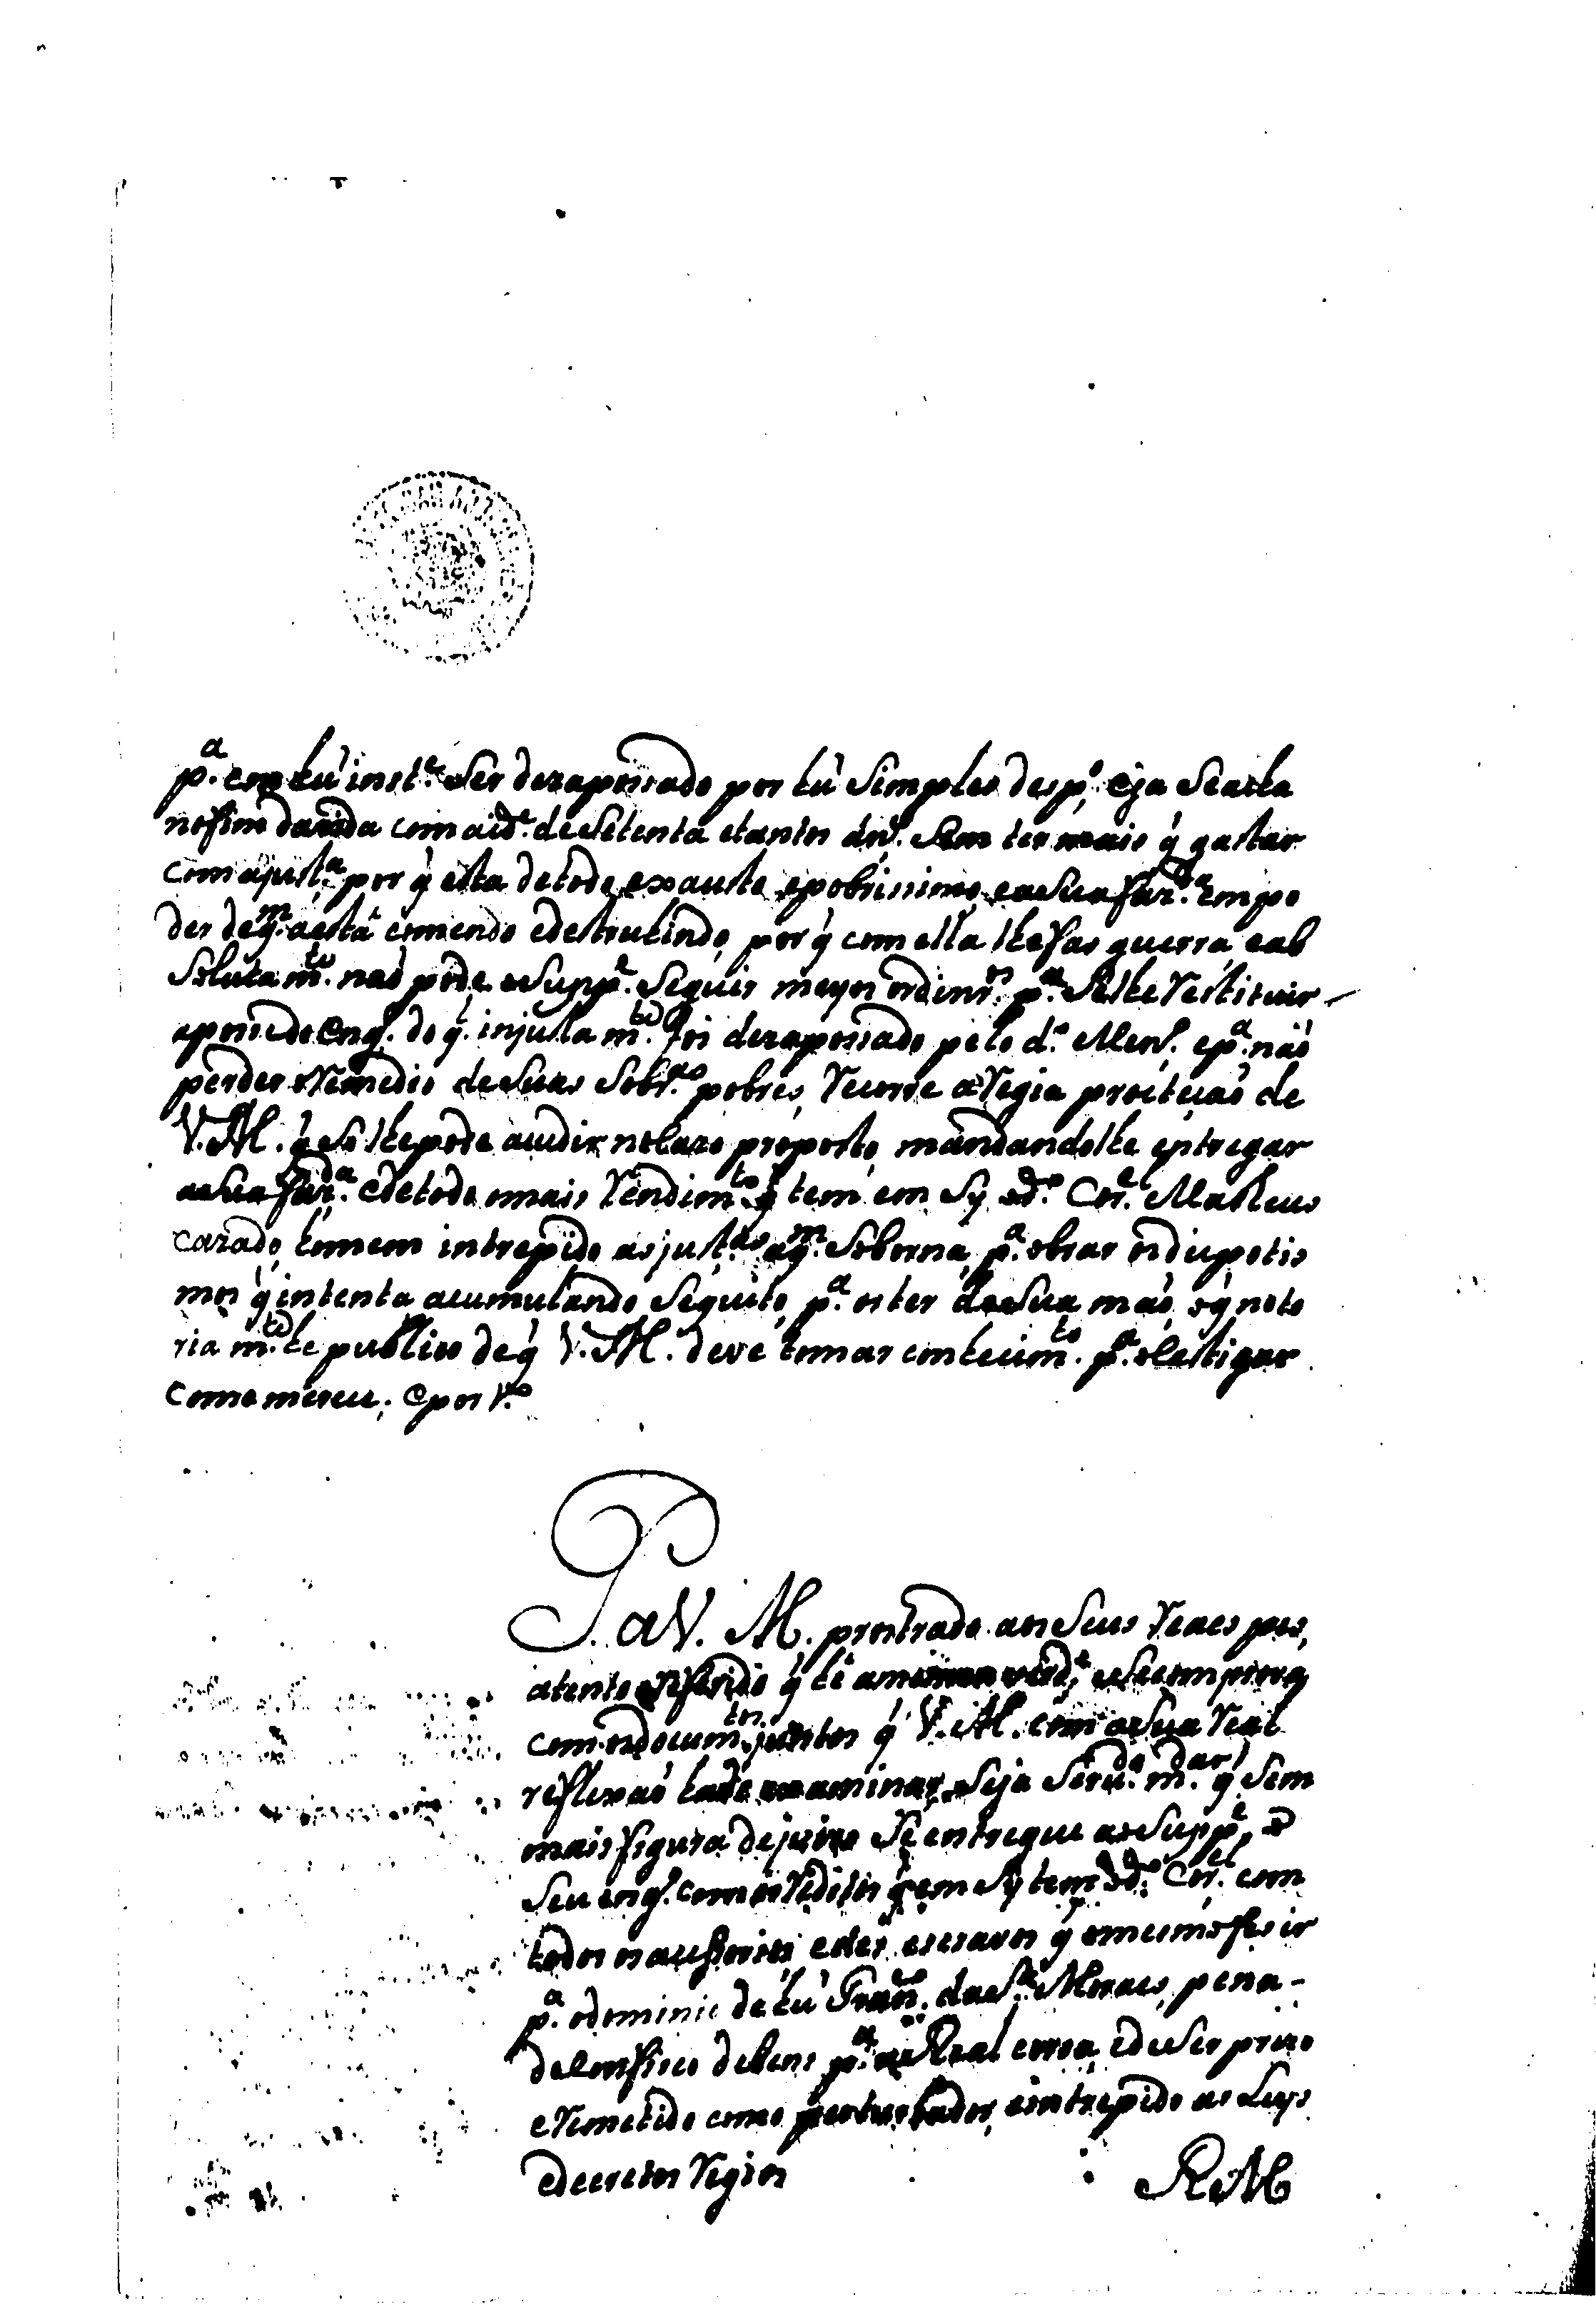 p.ª em hũ inst.e ser dezapossado por hũ simples desp.º, e ja se acha
no fim da vida com a id.e de setenta e tantos an.s sem ter mais q̃ gastar
com a just.ª, por q̃ esta de todo exausto, e pobrissimo, e a sua faz.da em po
der de q.m a está comendo e destruhindo, por q̃ com ella lhe fas guerra, e ab
soluta m.te naõ pode o supp.e seguir meyos ordinr.os p.ª se lhe restituir
a posse do Eng.º de q̃ injusta m.te foi dezapossado pelo d.º Men.º e p.ª naõ
perder o remedio de suas sobr.as pobres, recorre a regia proteiçaõ de
V. M. q̃ só lhe pode acudir no cazo proposto, mandandolhe entregar
a sua faz.da e de todo o mais rendim.to q̃ tem em sy o d.º Cor.el Matheus
cazado, homem intrepido as just.as a q.m soborna, p.ª obrar os dispotis
mos q̃ intenta acumulando sequito, p.ª os ter da sua maõ, o q̃ noto
ria m.te he publico de q̃ V. M. deve tomar conhecim.to p.ª o castigar
como merece; e por t.º
P. a V. M. prostrado aos seus reaes pes,
atento o referido q̃ he a mesma verd.e, e se comprova
com os docum.tos juntos q̃ V. M. com a sua real
reflexaõ hade examinar, seja serv.do m.dar q̃ sem
mais figura de juizo se entregue ao supp.e o
seu eng.º com os reditos q̃ em sy tem o d.º Cor.el com
todos os acessorios e des escravos q̃ o mesmo fes ir
p.ª o dominio de hũ Fran.co da S.ª Moraes, pena
de confisco de bens p.ª a Real coroa, e de ser prezo
e remetido como perturbador, e intrepido as Leys
e decretos regios
R M